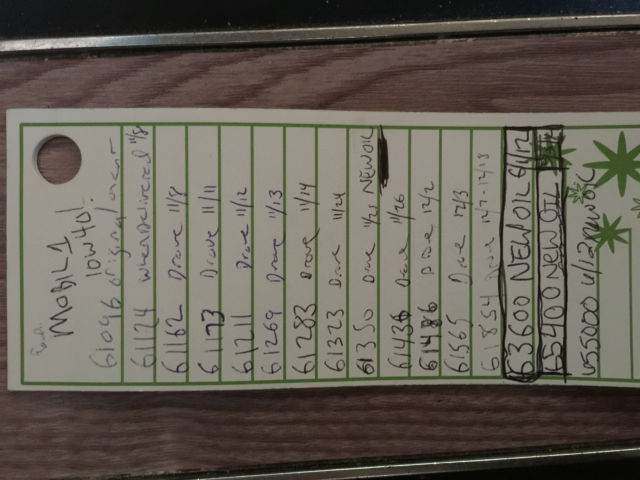 MOBIL 1
10W40!
61096 original
61124 when delivered 11/8
61162 Drove 11/8
61173 Drove 11/11
61211 Drove 11/12
61269 Drove 11/13
61283 Drove 11/14
61323 Drove 11/24
61350 Drove 11/25 NEW OIL
61436 Drove 11/26
61486 Drove 12/2
61565 Drove 12/3
61854 Drove 12/7-12/18
63600 NEW OIL 6/1/12
65400 NEW OIL
new oil